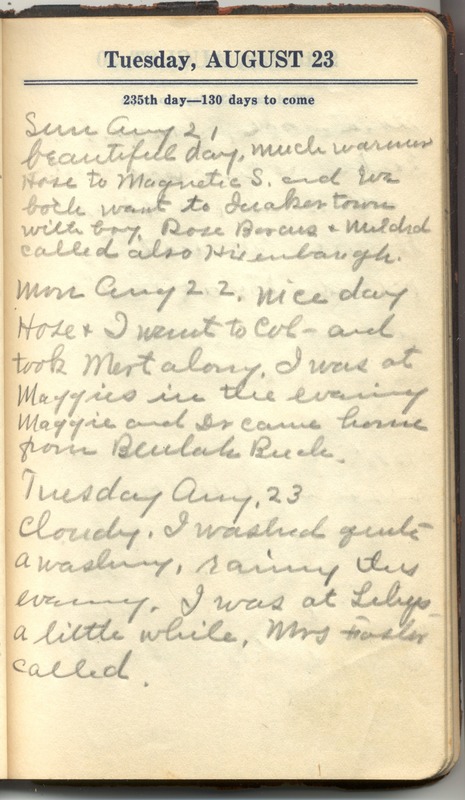 Tuesday, AUGUST 23
235th day—130 days to come
Sun Aug 21
beautiful day, much warmer
Hose to Magnetic S. and we
both went to Quakertown
with boy. Rose Bocus & Mildred
called also Hisenbaugh.
Mon Aug 22. nice day
Hose & I went to Col- and
took Mert along. I was at
Maggies in the evening
Maggie and Dr came home
from Beulah Beach.
Tuesday Aug, 23
Cloudy. I washed quite
a washing, rainy this
evening. I was at Libys
a little while. Mrs Foster
called.